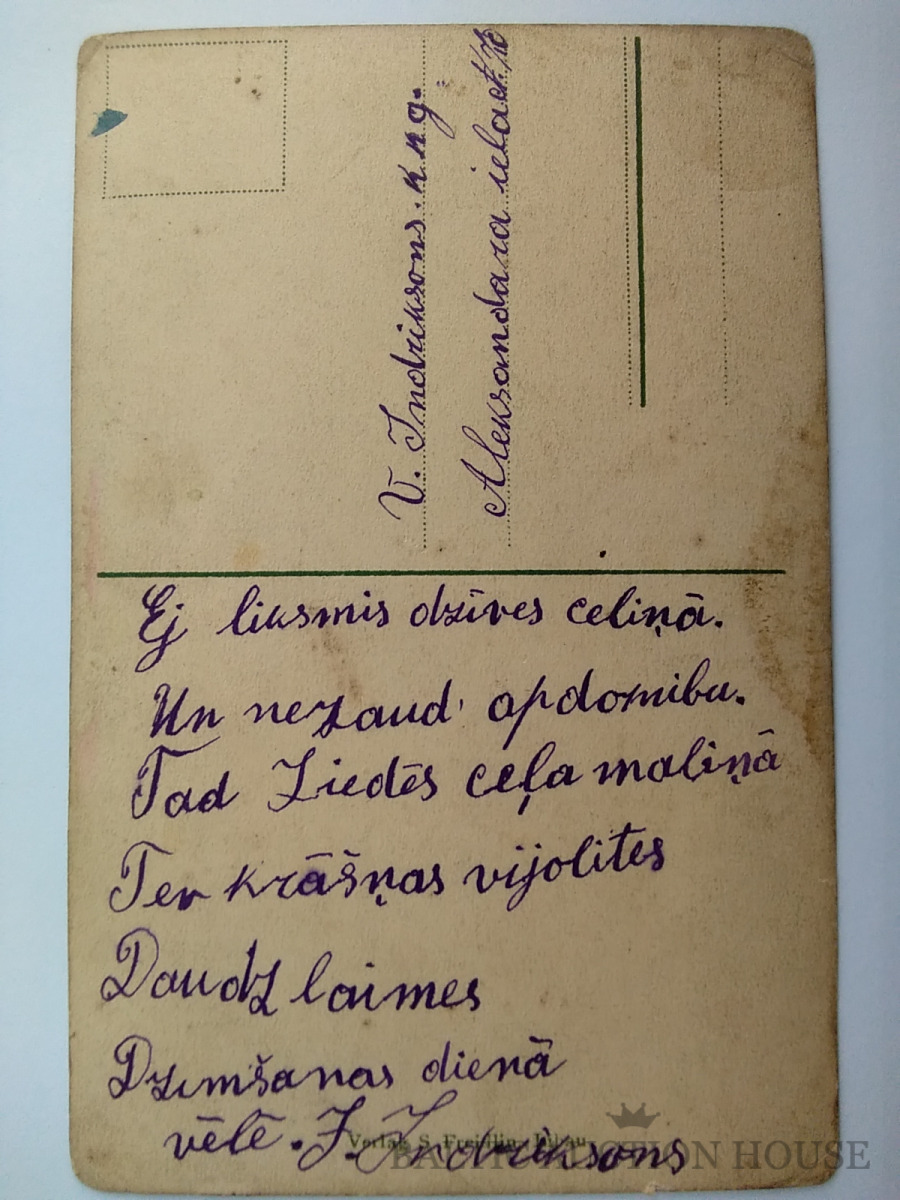 V. Indriksons. K. K. g.
Aleksandara iela
Ej liksmis dzīves celiņā.
Un nezaud' apdomibu.
Tad Ziedēs ceļa maliņā
Tev krāšņas vijolites
Daudz laimes
Dzimšanas dienā
vēlē. J. Indriksons
Verlag S. Freidlin, Libau
BALTIC AUCTION HOUSE